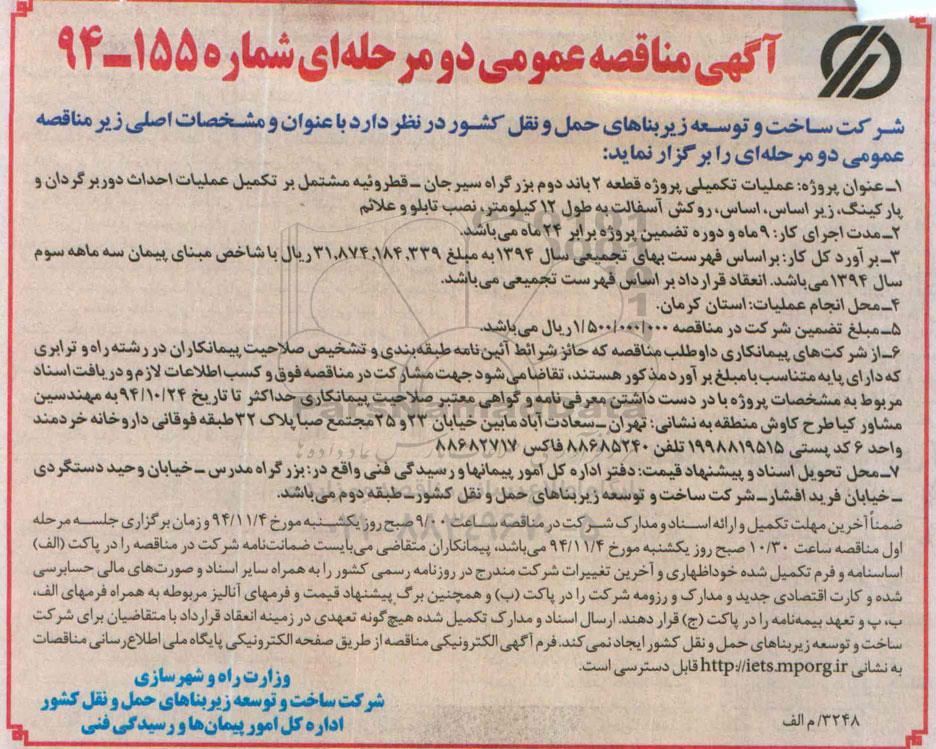 آگهی مناقصه عمومی دو مرحله‌ای شماره ۱۵۵ـ۹۴
شرکت ساخت و توسعه زیربناهای حمل و نقل کشور در نظر دارد با عنوان و مشخصات اصلی زیر مناقصه
عمومی دو مرحله‌ای را برگزار نماید:
۱ـ عنوان پروژه: عملیات تکمیلی پروژه قطعه ۲ باند دوم بزرگراه سیرجان ـ قطروئیه مشتمل بر تکمیل عملیات احداث دوربرگردان و
پارکینگ، زیر اساس، اساس، روکش آسفالت به طول ۱۲ کیلومتر، نصب تابلو و علائم
۲ـ مدت اجرای کار: ۹ ماه و دوره تضمین پروژه برابر ۲۴ ماه می‌باشد.
۳ـ برآورد کل کار: براساس فهرست بهای تجمیعی سال ۱۳۹۴ به مبلغ ۳۱,۸۷۴,۱۸۴,۳۳۹ ریال با شاخص مبنای پیمان سه ماهه سوم
سال ۱۳۹۴ می‌باشد. انعقاد قرارداد بر اساس فهرست تجمیعی می‌باشد.
۴ـ محل انجام عملیات: استان کرمان.
۵ـ مبلغ تضمین شرکت در مناقصه ۱/۵۰۰/۰۰۰/۰۰۰ ریال می‌باشد.
۶ـ از شرکت‌های پیمانکاری داوطلب مناقصه که حائز شرائط آئین‌نامه طبقه‌بندی و تشخیص صلاحیت پیمانکاران در رشته راه و ترابری
که دارای پایه متناسب با مبلغ برآورد مذکور هستند، تقاضا می‌شود جهت مشارکت در مناقصه فوق و کسب اطلاعات لازم و دریافت اسناد
مربوط به مشخصات پروژه با در دست داشتن معرفی‌نامه و گواهی معتبر صلاحیت پیمانکاری حداکثر تا تاریخ ۹۴/۱۰/۲۴ به مهندسین
مشاور کیاطرح کاوش منطقه به نشانی: تهران ـ سعادت آباد مابین خیابان ۲۳ و ۲۵ مجتمع صبا پلاک ۳۲ طبقه فوقانی داروخانه خردمند
واحد ۶ کد پستی ۱۹۹۸۸۱۹۵۱۵ تلفن ۸۸۶۸۵۲۴۰ فاکس ۸۸۶۸۲۷۱۷
۷ـ محل تحویل اسناد و پیشنهاد قیمت: دفتر اداره کل امور پیمانها و رسیدگی فنی واقع در: بزرگراه مدرس ـ خیابان وحید دستگردی
ـ خیابان فرید افشار ـ شرکت ساخت و توسعه زیربناهای حمل و نقل کشور ـ طبقه دوم می‌باشد.
ضمناً آخرین مهلت تکمیل و ارائه اسناد و مدارک شرکت در مناقصه ساعت ۹/۰۰ صبح روز یکشنبه مورخ ۹۴/۱۱/۴ و زمان برگزاری جلسه مرحله
اول مناقصه ساعت ۱۰/۳۰ صبح روز یکشنبه مورخ ۹۴/۱۱/۴ می‌باشد، پیمانکاران متقاضی می‌بایست ضمانت‌نامه شرکت در مناقصه را در پاکت (الف)
اساسنامه و فرم تکمیل شده خوداظهاری و آخرین تغییرات شرکت مندرج در روزنامه رسمی کشور را به همراه سایر اسناد و صورت‌های مالی حسابرسی
شده و کارت اقتصادی جدید و مدارک و رزومه شرکت را در پاکت (ب) و همچنین برگ پیشنهاد قیمت و فرمهای آنالیز مربوطه به همراه فرمهای الف،
ب، پ و تعهد بیمه‌نامه را در پاکت (ج) قرار دهند. ارسال اسناد و مدارک تکمیل شده هیچ‌گونه تعهدی در زمینه انعقاد قرارداد با متقاضیان برای شرکت
ساخت و توسعه زیربناهای حمل و نقل کشور ایجاد نمی‌کند. فرم آگهی الکترونیکی مناقصه از طریق صفحه الکترونیکی پایگاه ملی اطلاع‌رسانی مناقصات
به نشانی http://iets.mporg.ir قابل دسترسی است.
وزارت راه و شهرسازی
شرکت ساخت و توسعه زیربناهای حمل و نقل کشور
اداره کل امور پیمان‌ها و رسیدگی فنی
۳۲۴۸/م الف
ParsNamadData